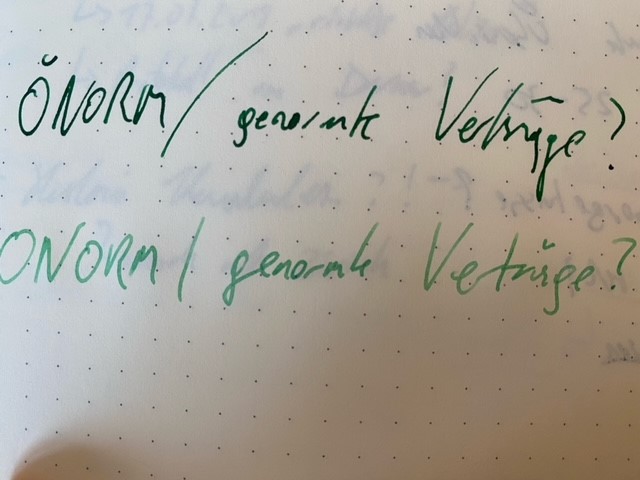 ÖNORM / genormte Verträge?
ONORM / genormte Verträge?